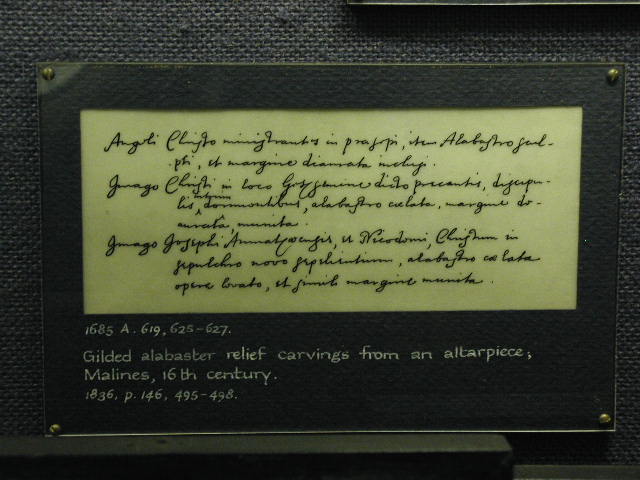 Angeli Christo ministrantes in præsepi, item Alabastro scul-
pti, et margine deaurata inclusi.
Imago Christi in loco Getsemine dicto precantis, discipu-
lis interim dormientibus, alabastro cælata, margine de-
aurata, munita.
Imago Josephi Arimat, et Nicodemi, Christum in
sepulchro novo sepelientium, alabastro cælata
opere, et simili margine munita.
1685 A. 619, 625-627.
Gilded alabaster relief carvings from an altarpiece;
Malines, 16th century.
1836, p. 146, 495-498.